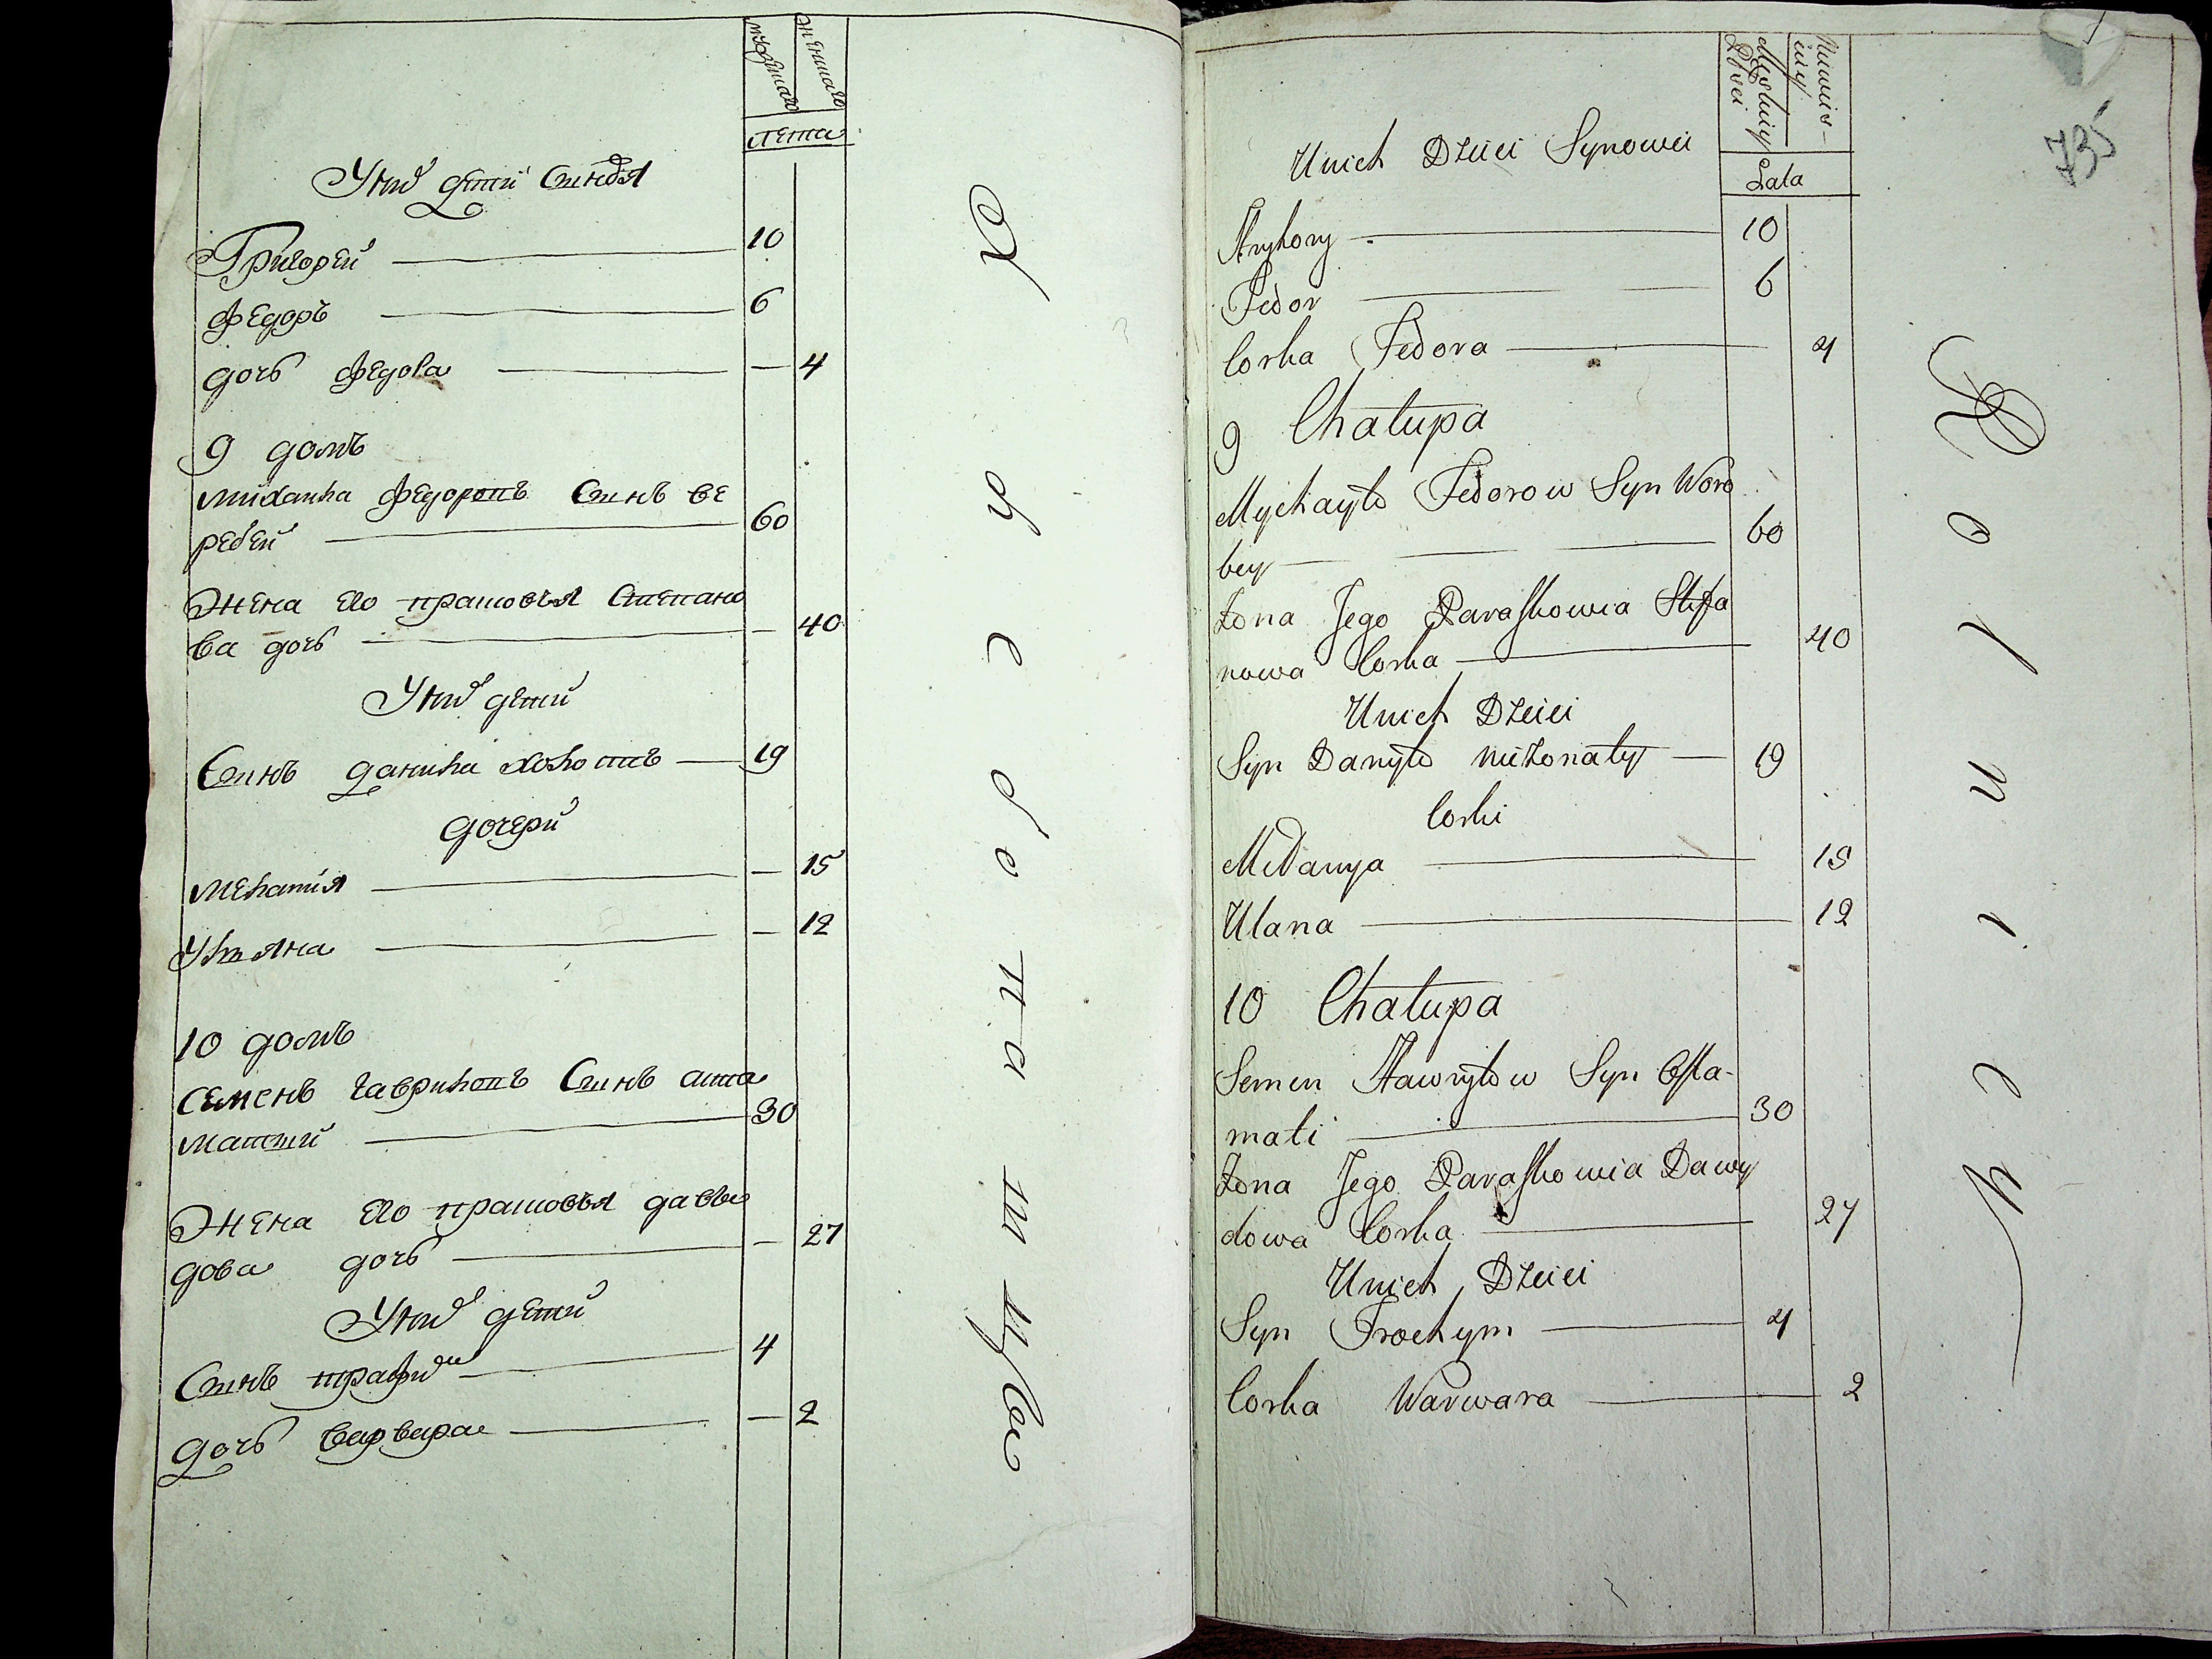 мужеска женска
лета
У них дети сыновя
Григорей 10
Федоръ 6
дочь Федора — 4
9 домъ
михайла Федоровъ Сынъ ве
ребей 60
Жена его прасковья Степано
ва дочь — 40
У них дети
Сынъ данила холостъ 19
дочери
мелания — 15
Ульяна — 12
10 домъ
Семенъ гавриловъ Сынъ
30
Жена его прасковья давы
дова дочь — 27
У них дети
Сынъ трафим 4
дочь варвара — 2
735
Lata
Unich Dzieci Synowei
Hryhory 10
Fedor 6
Corka Fedora 4
9 Chałupa
Mychayło Fedorow Syn Woro
bey 60
Żona Jego Paraskowia Stefa
nowa Corka 40
Unich Dzieci
Syn Danyło nieżonaty 19
Corki
Mełanya 15
Ulana 12
10 Chałupa
Semen Hawryłow Syn Osta-
mati 30
Żona Jego Paraskowia Dawy
dowa Corka 27
Unich Dzieci
Syn Trochym 4
Corka Warwara 2